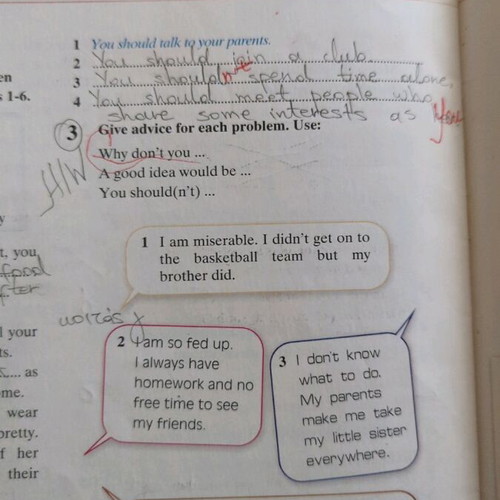 1 You should talk to your parents.
2 You should join a club.
3 You shouldn't spend time alone.
4 You should meet people who
share some interests as
en
s 1-6.
3 Give advice for each problem. Use:
H/W
Why don't you ...
A good idea would be ...
You should(n't) ...
y
t, you
food
after
1 I am miserable. I didn't get on to
the basketball team but my
brother did.
l your
ts.
.... as
me.
wear
pretty.
f her
their
2 I am so fed up.
I always have
homework and no
free time to see
my friends.
3 I don't know
what to do.
My parents
make me take
my little sister
everywhere.